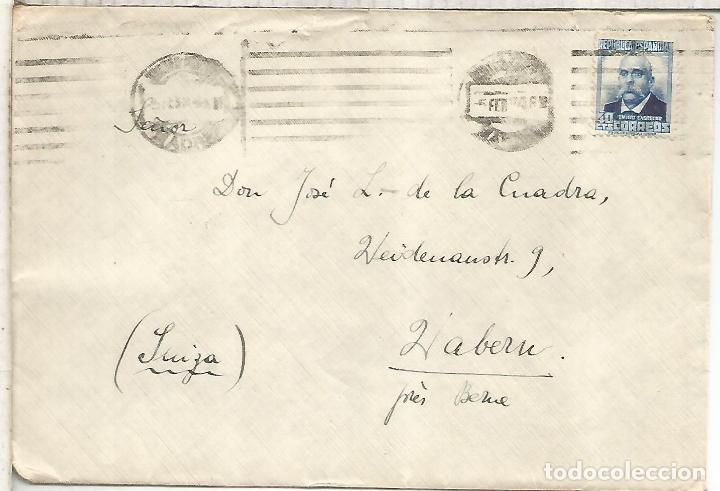 REPUBLICA ESPAÑOLA
40 CTS
EMILIO CASTELAR
CORREOS
-5 FEB
Señor
Don José L.- de la Cuadra,
Weidenaustr. 9,
(Suiza)
Wabern.
près Berne
todocoleccion